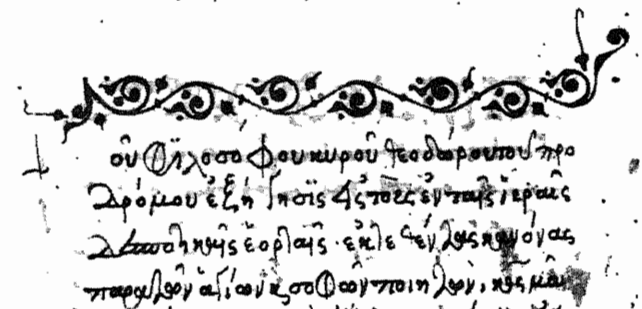 οῦ Φιλοσοφου κυροῦ θεοδώρου τοῦ προ
δρόμου ἐξήγησϊς εἰς τοὺς ἐν ταῖς ἱεραῖς
ἑορταῖς ἐκτεθέντας κανόνας
παρὰ τῶν ἁγίων καὶ σοφῶν ποιητῶν,